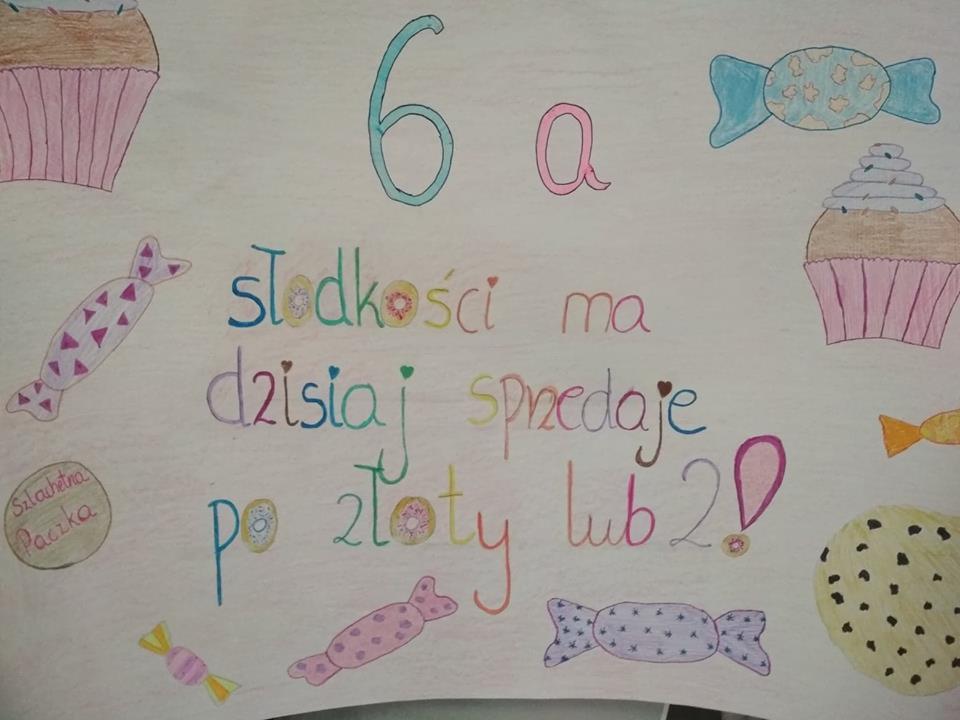 6 a
słodkości ma
dzisiaj sprzedaje
po złoty lub 2!
Szlachetna
Paczka